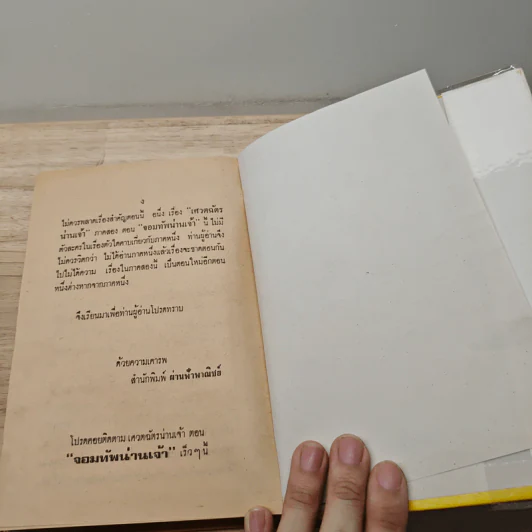 ๔
ไม่ควรพลาดเรื่องสำคัญตอนนี้ อนึ่ง เรื่อง "เศวตฉัตร
น่านเจ้า" ภาคสอง ตอน "จอมทัพน่านเจ้า" นี้ ไม่มี
ตัวละครในเรื่องตัวใดคาบเกี่ยวกับภาคหนึ่ง ท่านผู้อ่านจึง
ไม่ควรวิตกว่า ไม่ได้อ่านภาคหนึ่งแล้วเรื่องจะขาดตอนกัน
ไปไม่ได้ความ เรื่องในภาคสองนี้ เป็นตอนใหม่อีกตอน
หนึ่งต่างหากจากภาคหนึ่ง
จึงเรียนมาเพื่อท่านผู้อ่านโปรดทราบ
ด้วยความเคารพ
สำนักพิมพ์ ผ่านฟ้าพาณิชย์
โปรดคอยติดตาม เศวตฉัตรน่านเจ้า ตอน
"จอมทัพน่านเจ้า" เร็ว ๆ นี้